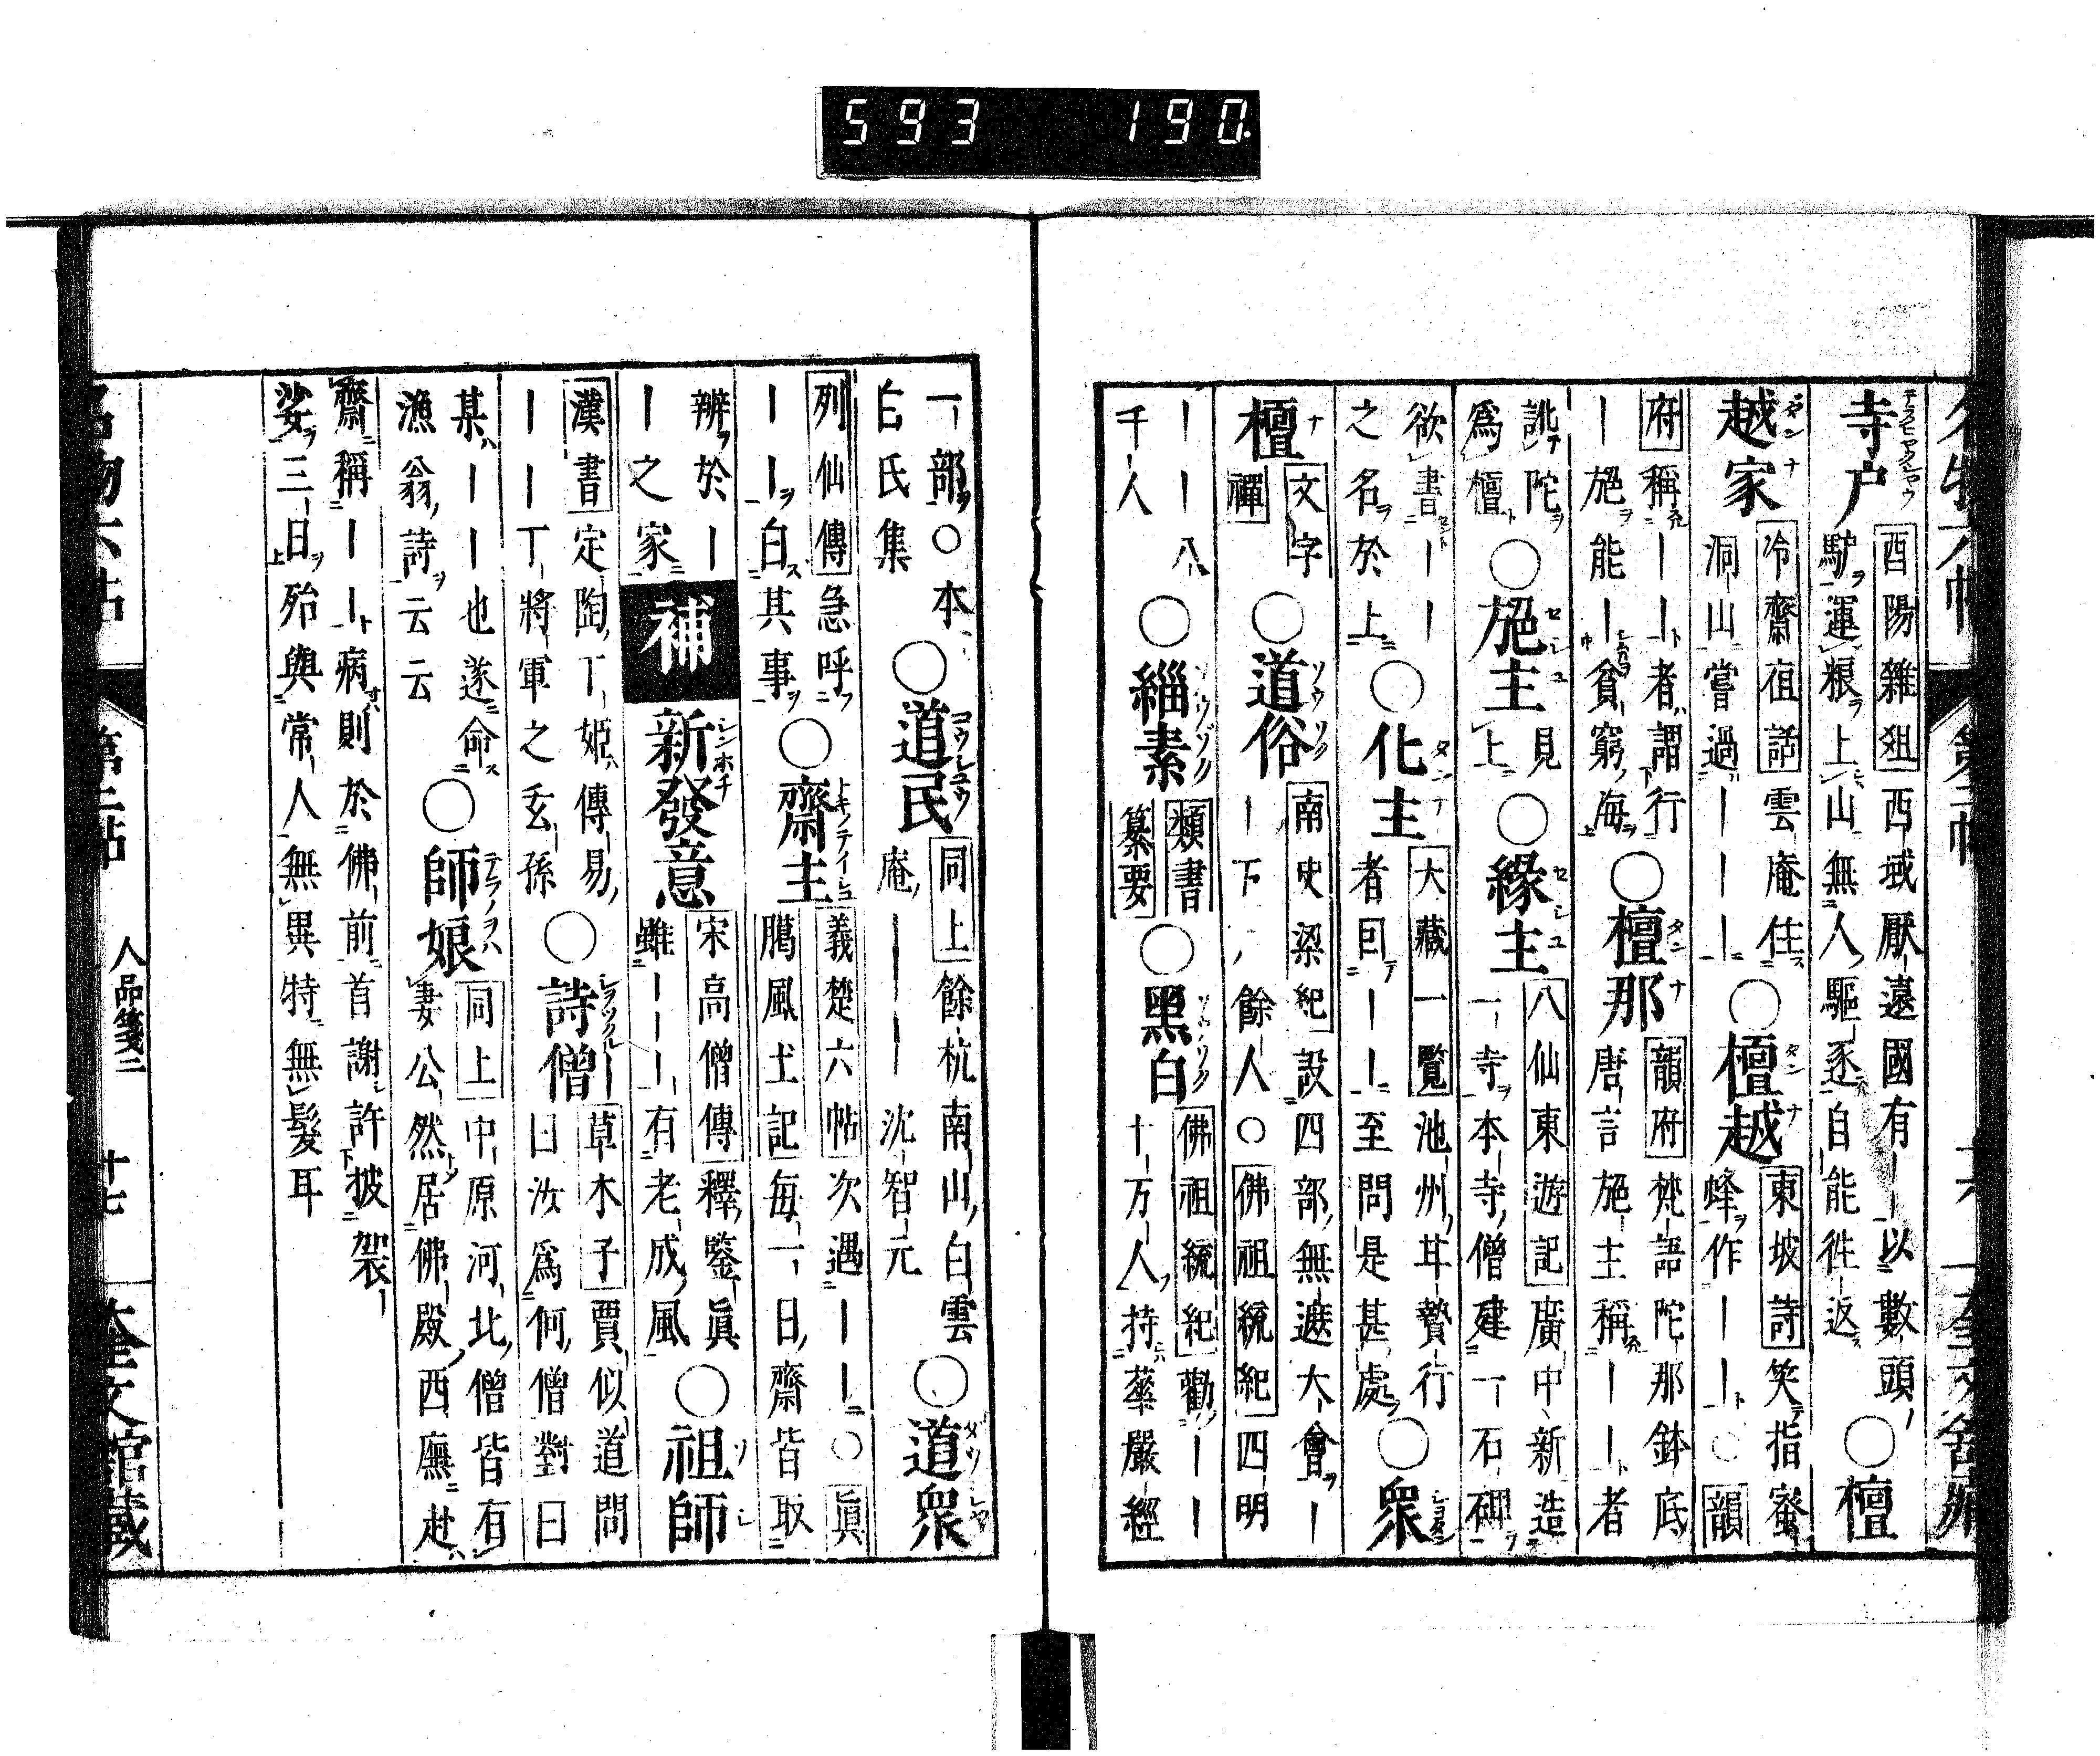 593 190.
寺戸 酉陽雜爼 西域厭遠國有一以數頭
驢運粮上山無人驅逐自能徃返 ○檀
越家 冷齋夜話 雲庵住
洞山嘗過｜｜｜ ○檀越 東坡詩 笑指蜜
蜂作｜｜ ○ 韻
府 稱｜｜者謂行
｜施能｜貧窮海 ○檀那 韻府 梵語陀那鉢底
唐言施主稱｜｜者
訛陀
爲檀 ○施主 見上 ○緣主 八仙東遊記 廣中新造
一寺本寺僧建一石碑
欲書｜｜
之名於上 ○化主 大藏一覽 池州甘贄行
者曰｜｜至問是甚處 ○衆
檀 文字禪 ○道俗 南史梁紀 設四部無遮大會｜
｜下餘人 ○ 佛祖統紀 四明
｜｜八
千人 ○緇素 類書纂要 ○黑白 佛祖統紀 勸｜｜
十万人持華嚴經
一部 ○本
白氏集 ○道民 同上 餘杭南山白雲
庵｜｜｜沈智元 ○道衆
列仙傳 急呼
｜｜白其事 ○齋主 義楚六帖 次遇｜｜ ○ 眞
臈風土記 每一日齋皆取
辨於｜
｜之家 補 新發意 宋高僧傳 釋鑒眞
雖｜｜｜有老成風 ○祖師
漢書 定陶丁姬傳易
｜｜丁將軍之玄孫 ○詩僧 草木子 賈似道問
｜曰汝爲何僧對曰
某｜｜也遂命
漁翁詩云云 ○師娘 同上 中原河北僧皆有
妻公然居佛殿西廡赴
齋稱｜｜病則於佛前首謝許披袈
娑三日殆與常人無異特無髮耳
人品箋二 十七
奎文館藏